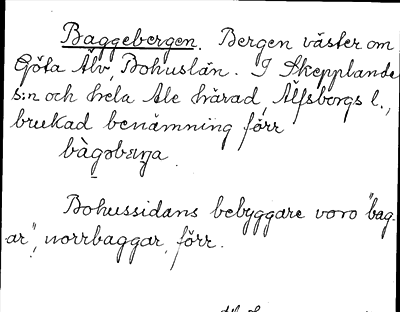 Baggebergen. Bergen väster om
Göta Älv, Bohuslän. I Skepplanda
s:n och hela Ale härad, Älfsborgs l.,
brukad benämning förr
bàgəbærja
Bohussidans bebyggare voro "bag-
ar", norrbaggar, förr.